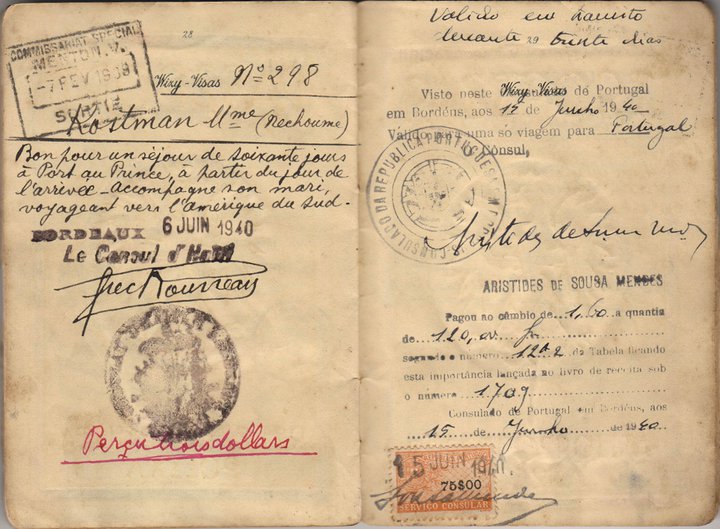 28
COMMISSARIAT SPECIAL
MENTON.V.
-7 FEV 1939
SORTIE
Visas No 298
Kostman Mme (Nechoume)
Bon pour un séjour de soixante jours
à Port au Prince, à partir du jour de
l'arrivée - Accompagne son mari,
voyageant vers l'amérique du Sud.-
BORDEAUX 6 JUIN 1940
Le Consul d'Haïti
Perçu trois dollars
Valido em transito
durante trinta dias
29
Visto neste Consulado de Portugal
em Bordéus, aos de Junho 1940
Válido para uma só viagem para Portugal
O Cónsul,
CONSULADO DA REPUBLICA PORTUGUESA EM
Aristides de Sousa Mendes
ARISTIDES DE SOUSA MENDES
Pagou ao câmbio de 1,60 a quantia
de 120,00
segundo o número da Tabela ficando
esta importância lançada no livro de receita sob
o número 1709
Consulado de Portugal em Bordéus, aos
15 de Junho de 1940
15 JUIN 1940
75$00
Sousa Mendes
SERVIÇO CONSULAR